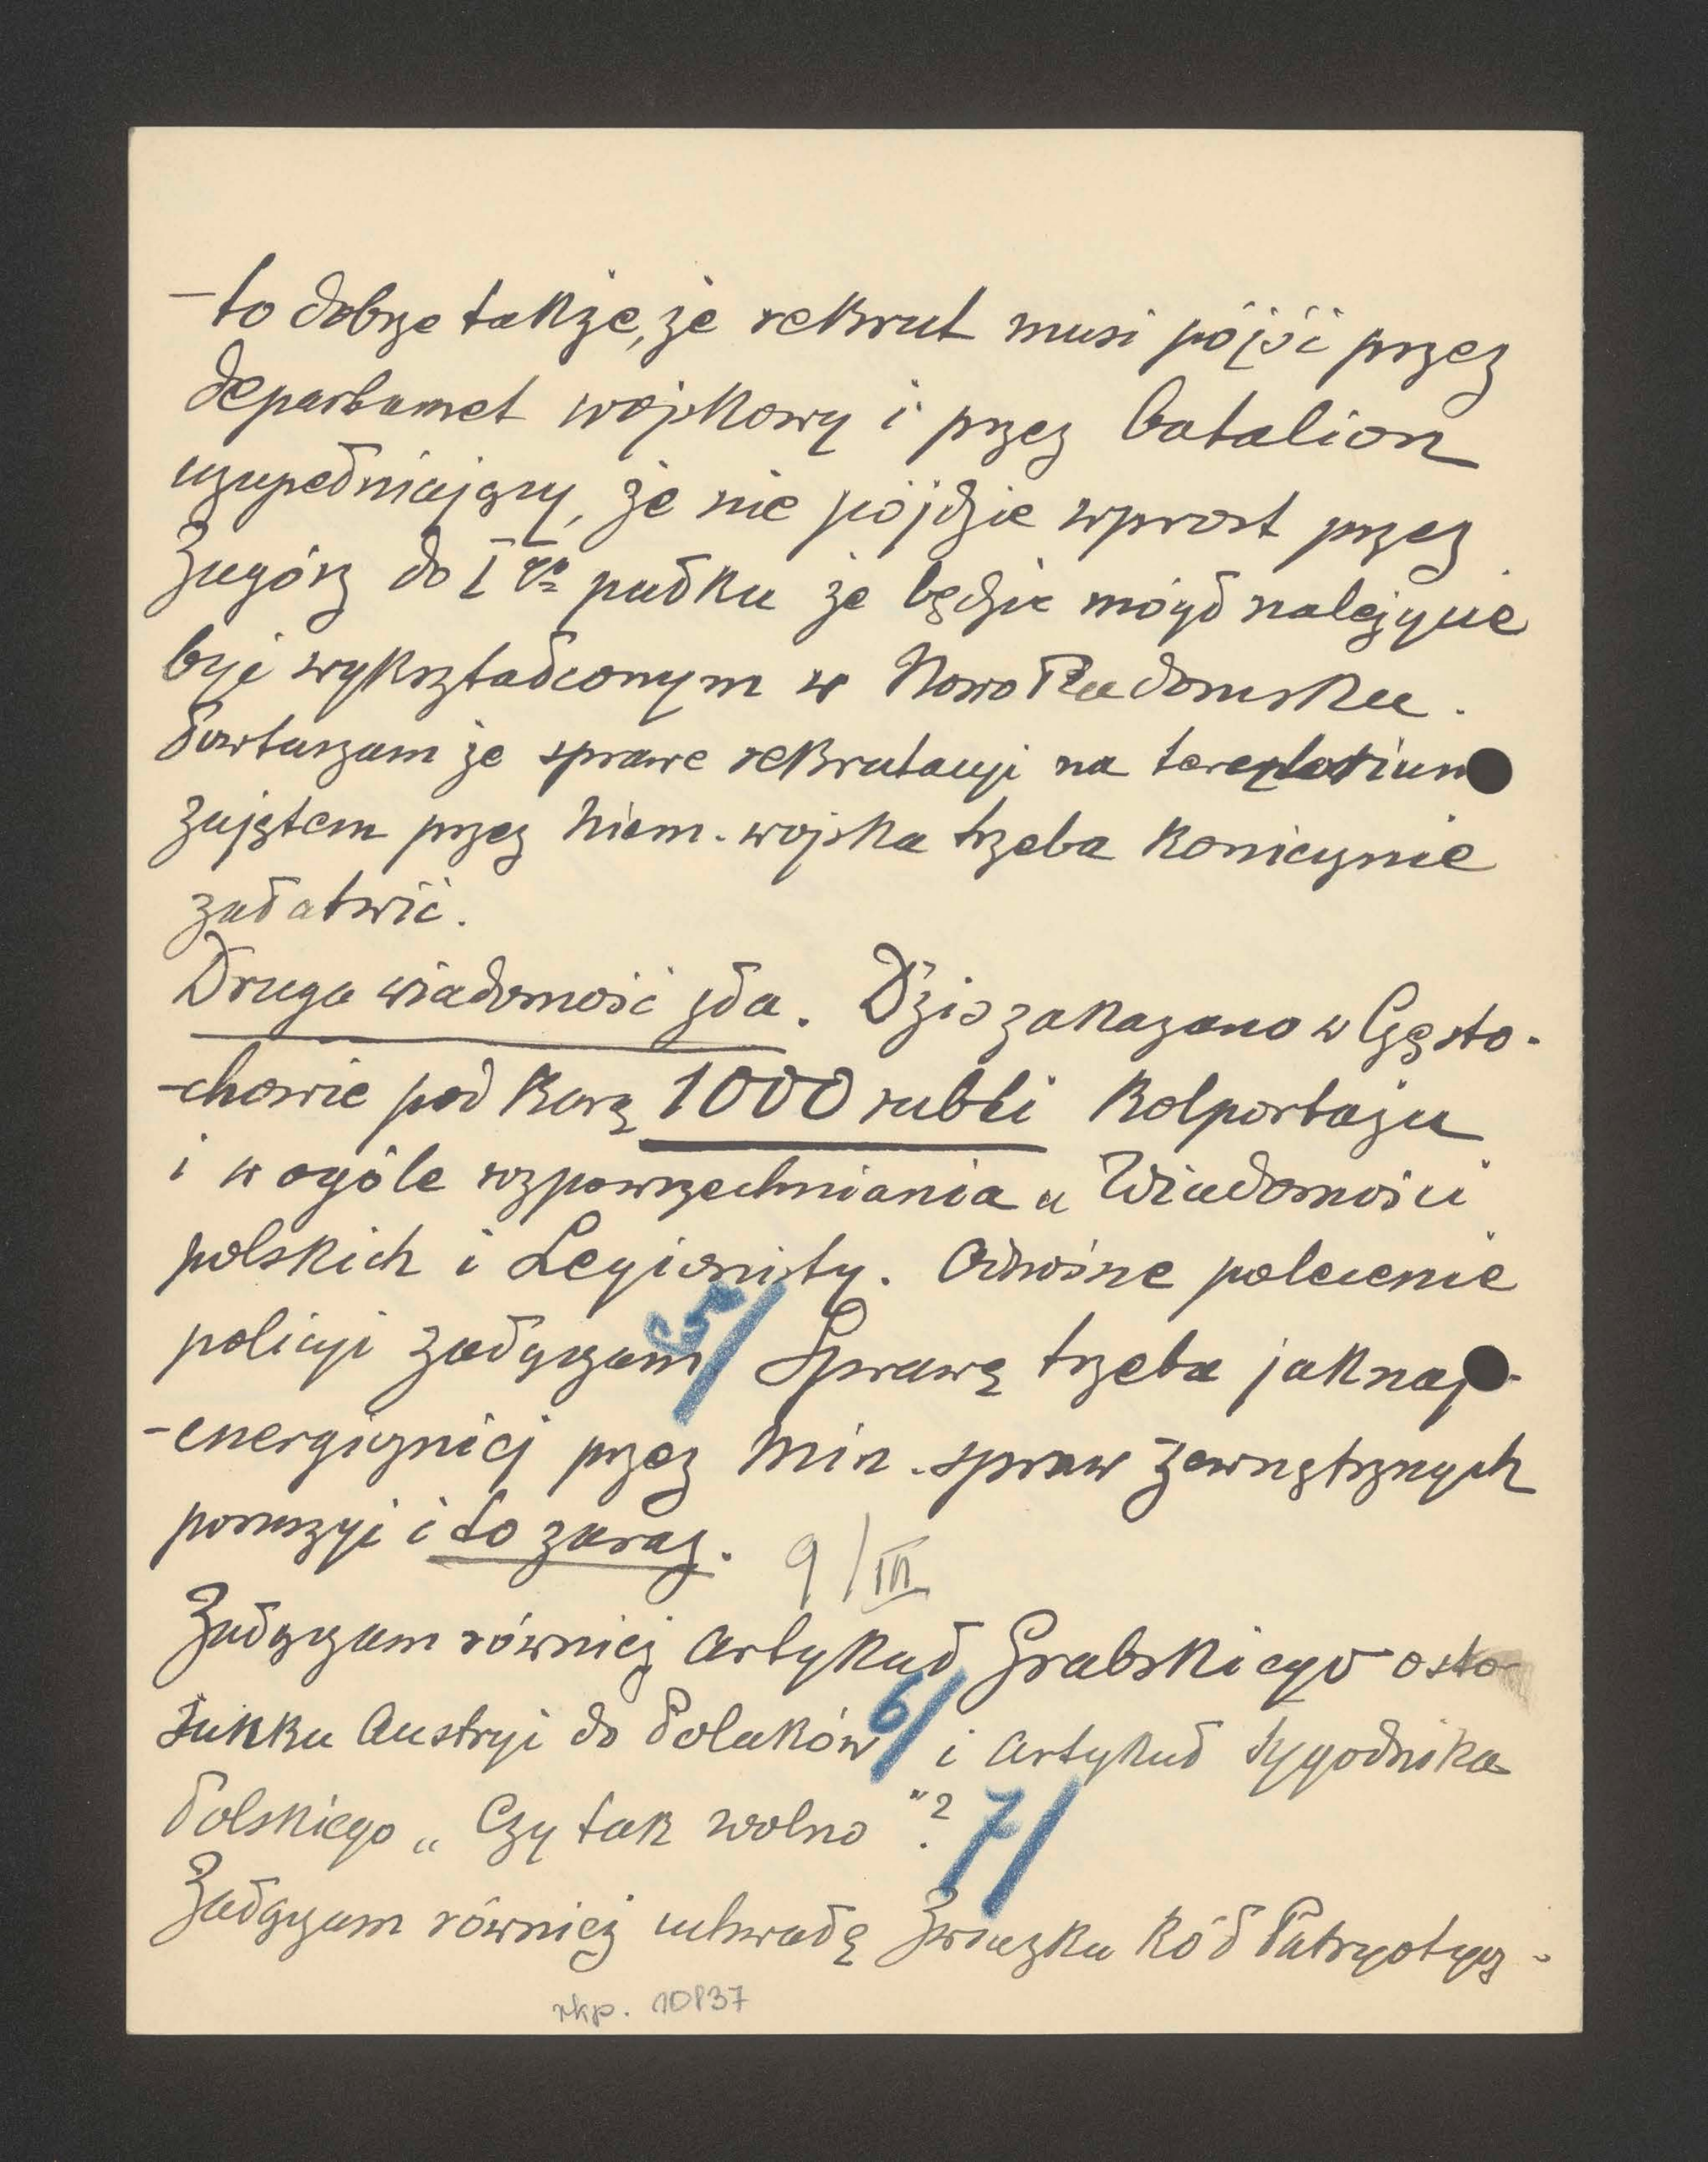 – to dobrze także, że rekrut musi pójść przez
departamet wojskowy i przez batalion
uzupełniający, że nie pójdzie wprost przez
Zagórz do I go pułku że będzie mógł należycie
być wykształconym w Nowo Radomsku.
Powtarzam że sprawe rekrutacyi na
zajętem przez niem. wojska trzeba koniecznie
załatwić.
Druga wiadomość zła. Dziś zakazano w Często-
-chowie pod karą 1000 rubli kolportażu
i w ogóle rozpowszechniania „ Wiadomości
polskich i Legionisty. Odnośne polecenie
policyi załączam 5/ Sprawę trzeba jaknaj-
-energiczniej przez Min. spraw zewnętrznych
poruszyć i to zaraz. 9/III
Załączam również artykuł Grabskiego o sto-
sunku Austryi do Polaków 6/ i artykuł tygodnika
Polskiego „ Czy tak wolno "? 7/
Załączam również uchwałę Związku kół Patryotycz-
rkp. 10837